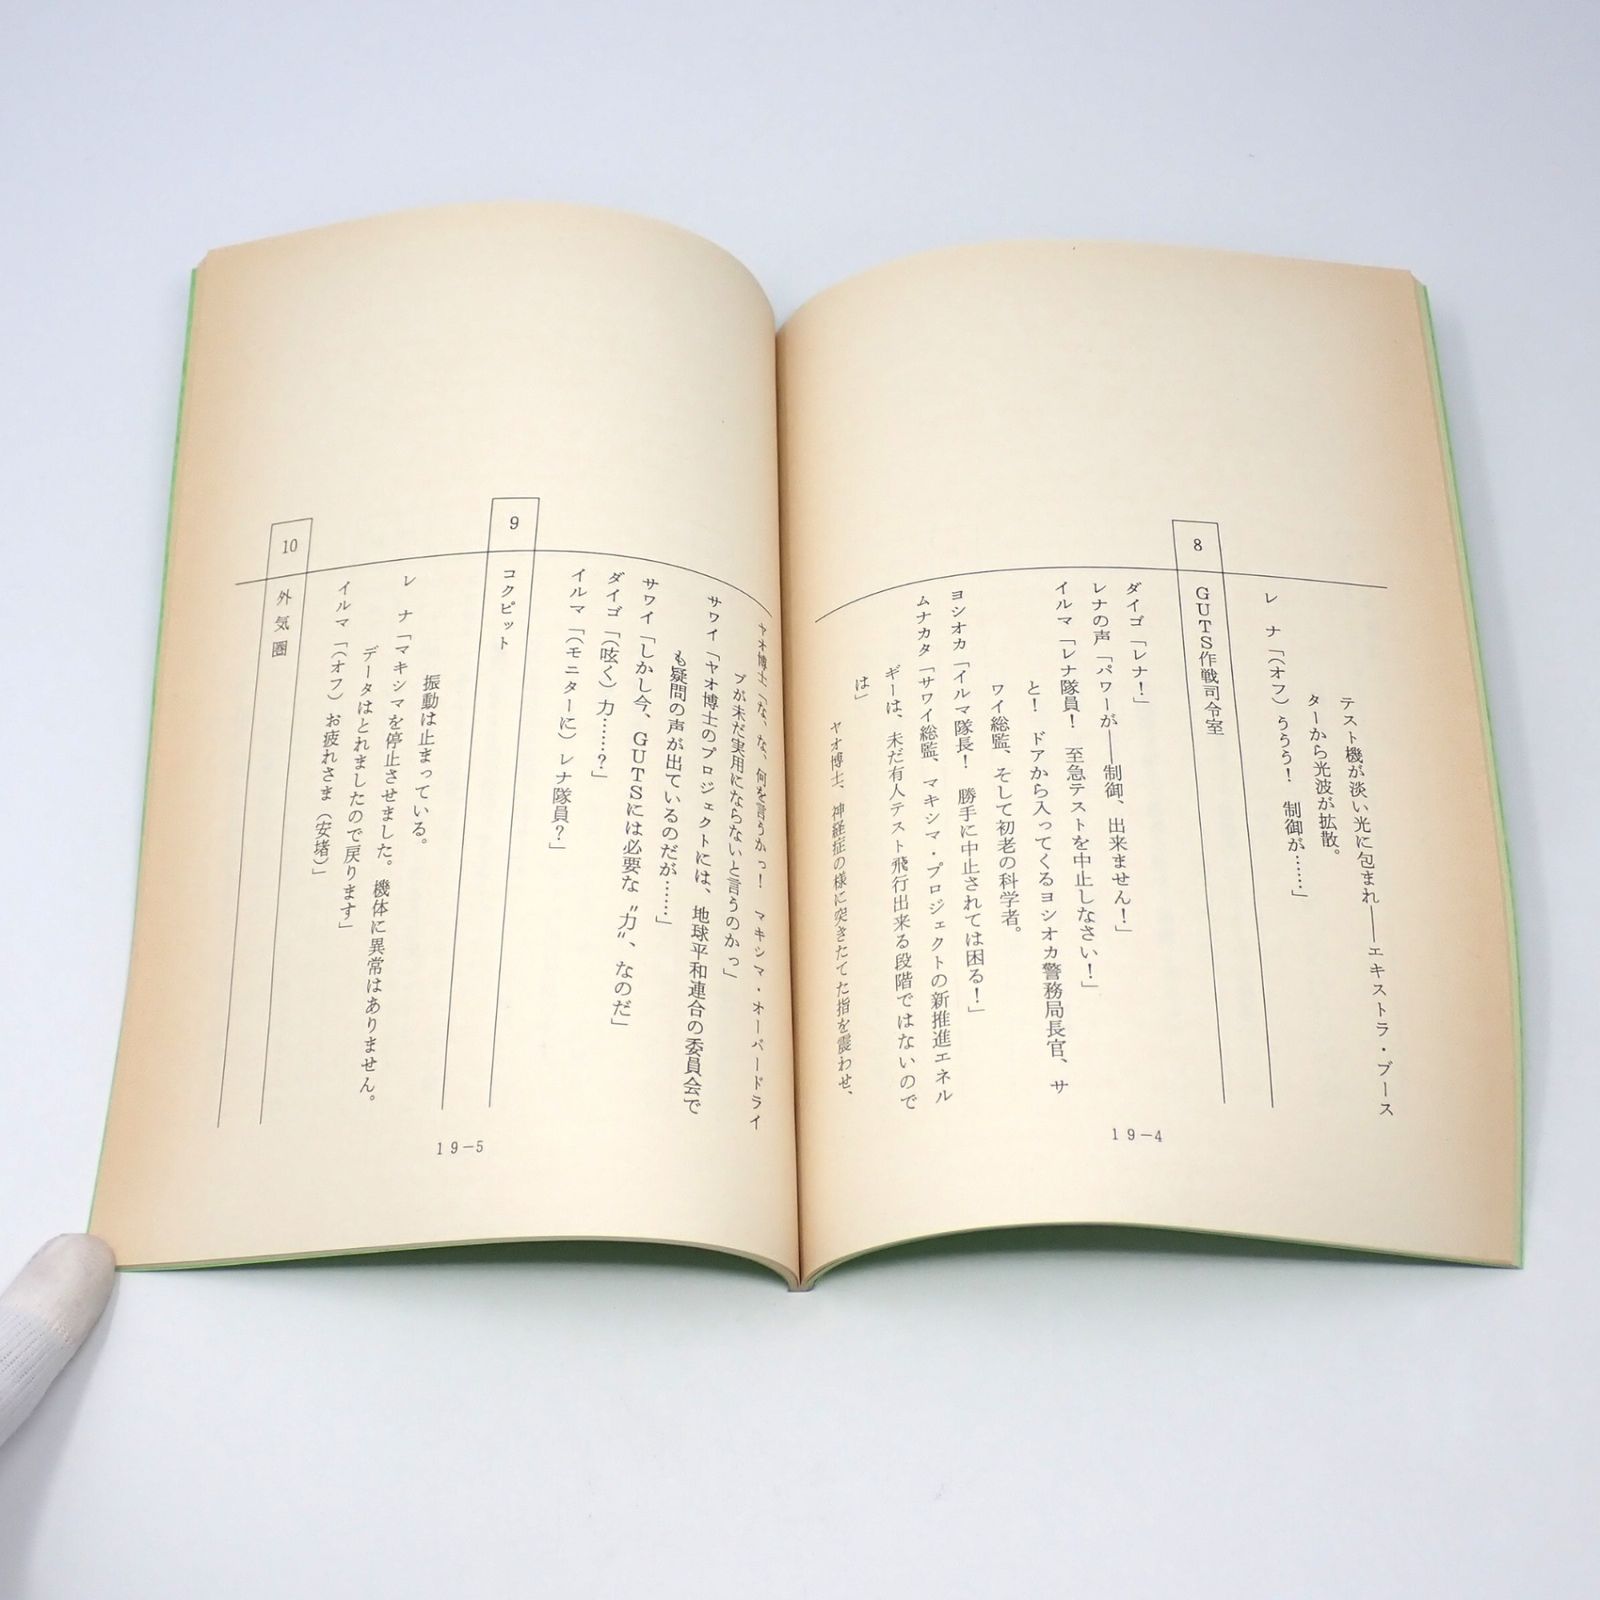 テスト機が淡い光に包まれ――エキストラ・ブース
ターから光波が拡散。
レナ「（オフ）ううう！　制御が……」
8
GUTS作戦司令室
ダイゴ「レナ！」
レナの声「パワーが――制御、出来ません！」
イルマ「レナ隊員！　至急テストを中止しなさい！」
と！　ドアから入ってくるヨシオカ警務局長官、サ
ワイ総監、そして初老の科学者。
ヨシオカ「イルマ隊長！　勝手に中止されては困る！」
ムナカタ「サワイ総監、マキシマ・プロジェクトの新推進エネル
ギーは、未だ有人テスト飛行出来る段階ではないので
は」
ヤオ博士、神経症の様に突きたてた指を震わせ、
19－4
ヤオ博士「な、な、何を言うかっ！　マキシマ・オーバードライ
ブが未だ実用にならないと言うのかっ」
サワイ「ヤオ博士のプロジェクトには、地球平和連合の委員会で
も疑問の声が出ているのだが……」
サワイ「しかし今、GUTSには必要な〝力〟なのだ」
ダイゴ「（呟く）力……？」
イルマ「（モニターに）レナ隊員？」
9
コクピット
振動は止まっている。
レナ「マキシマを停止させました。機体に異常はありません。
データはとれましたので戻ります」
イルマ「（オフ）お疲れさま（安堵）」
10
外気圏
19－5